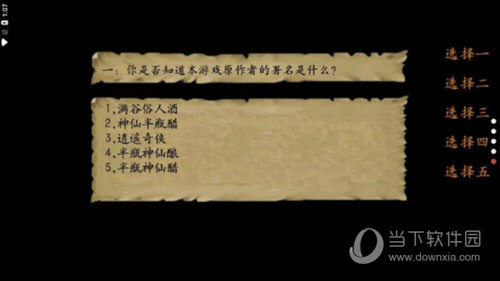 1:07
一：你是否知道本游戏原作者的署名是什么？
1,满谷俗人酒
2,神仙半瓶醋
3,逍遥奇侠
4,半瓶神仙酿
5,半瓶神仙醋
选择一
选择二
选择三
选择四
选择五
当下软件园
www.downxia.com